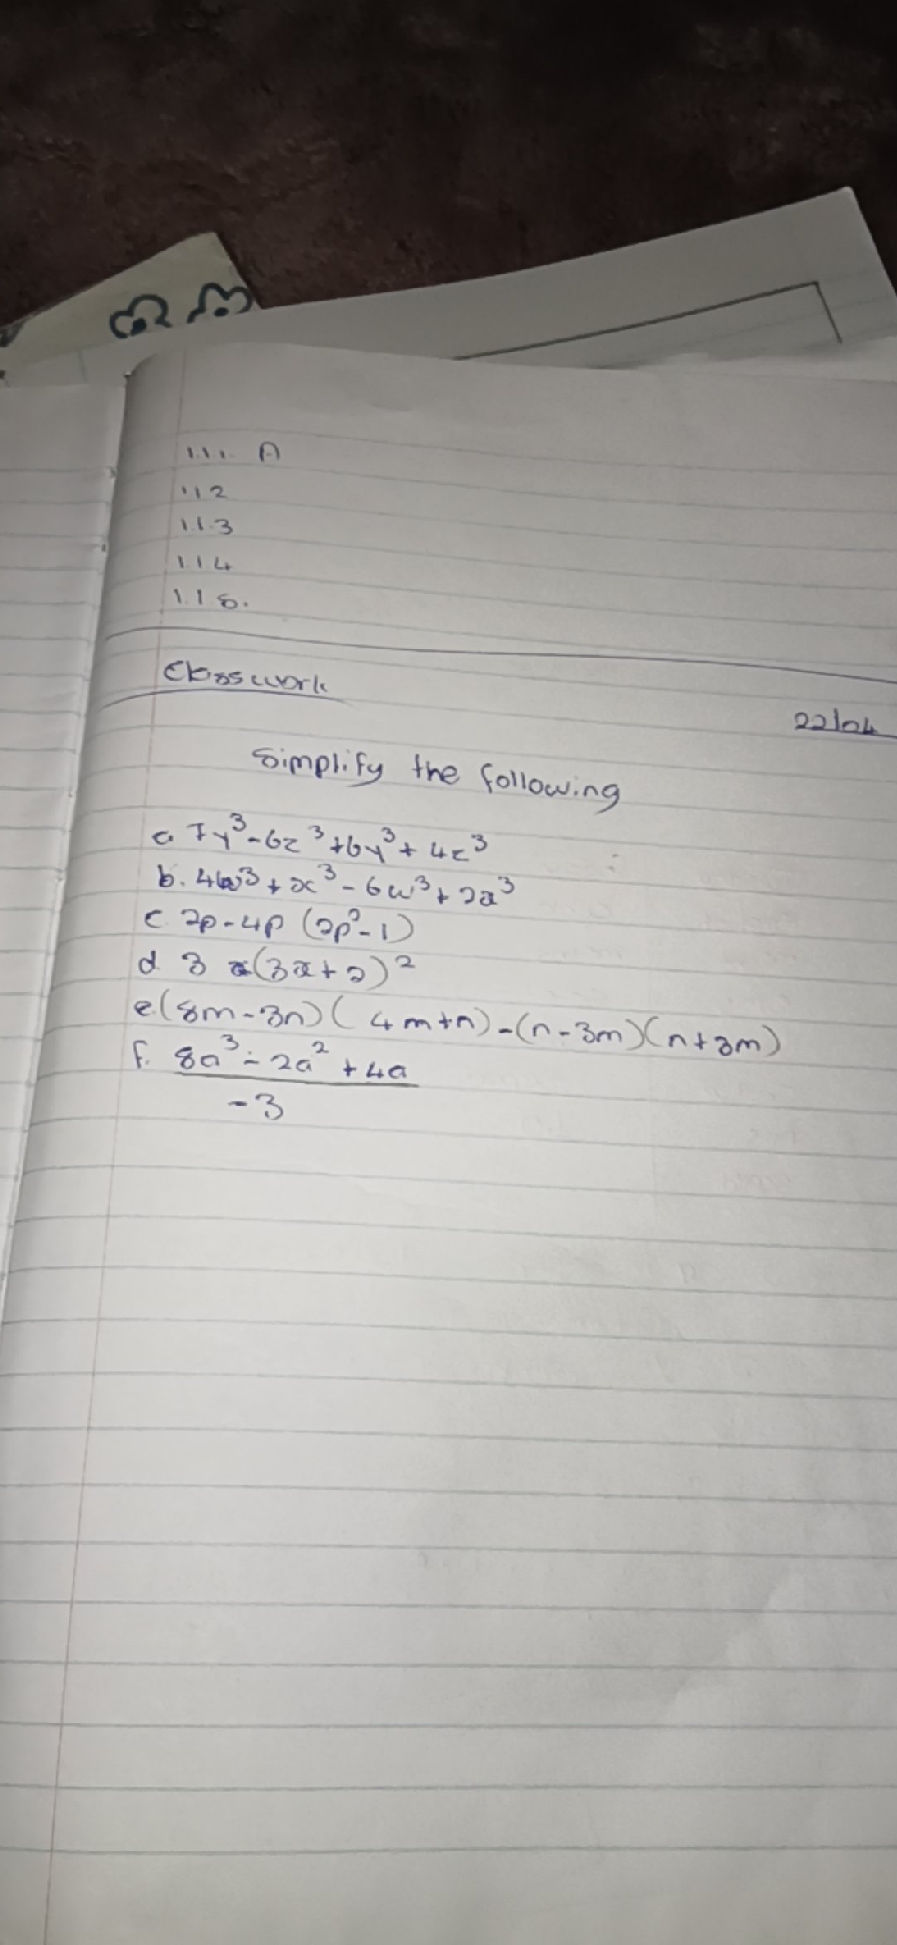 1.1.1. A
1.1.2
1.1.3
1.1.4
1.1.5.
Classwork
22/04
Simplify the following
a. 7y³-6z³+6y³+4z³
b. 4w³+x³-6w³+2x³
c. 2p-4p (2p²-1)
d 3 x(3x+2)²
e.(8m-3n)(4m+n)-(n-3m)(n+3m)
f. 8a³-2a²+4a
-3